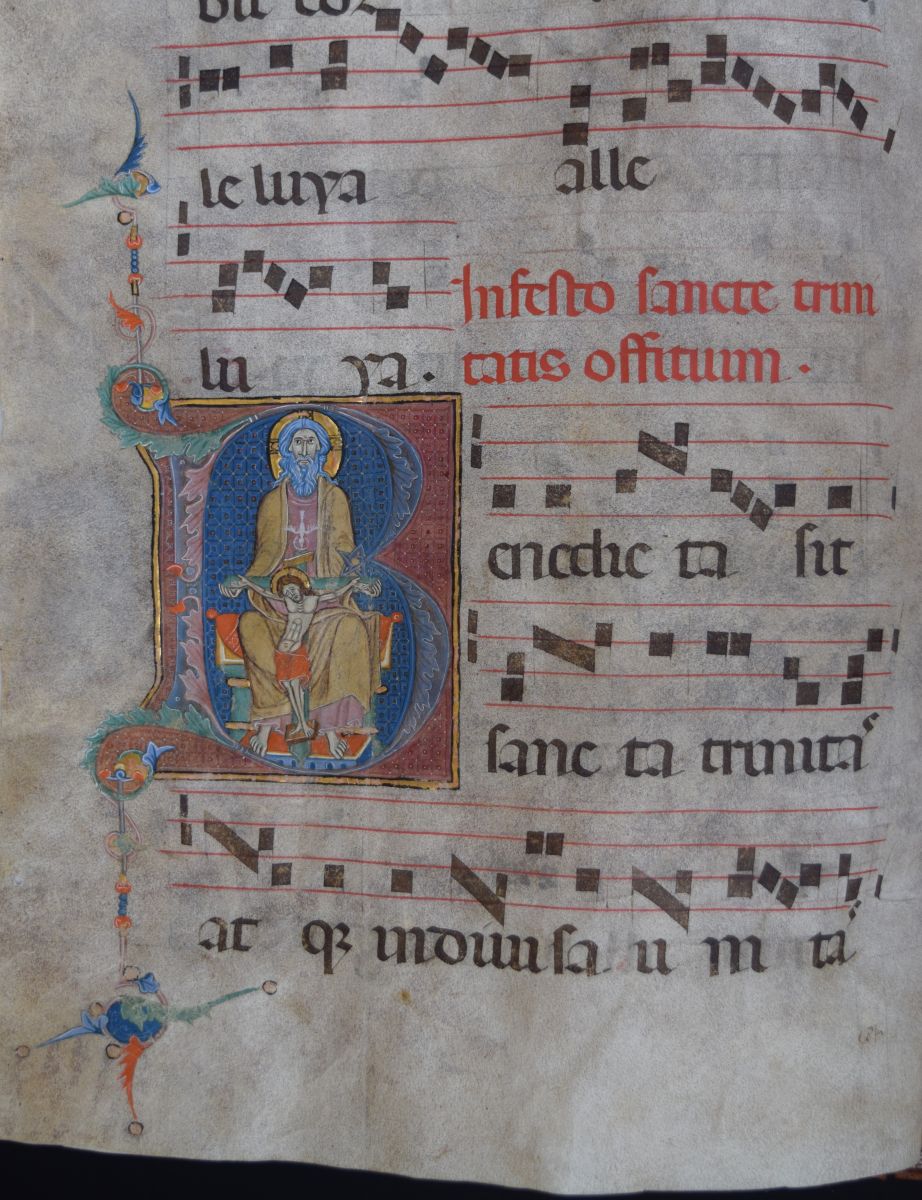 le luya alle
In festo sancte trini
lu ya .
tatis offitium .
Benedic ta sit
sanc ta trinitas
at qз indiuisa u ni tas